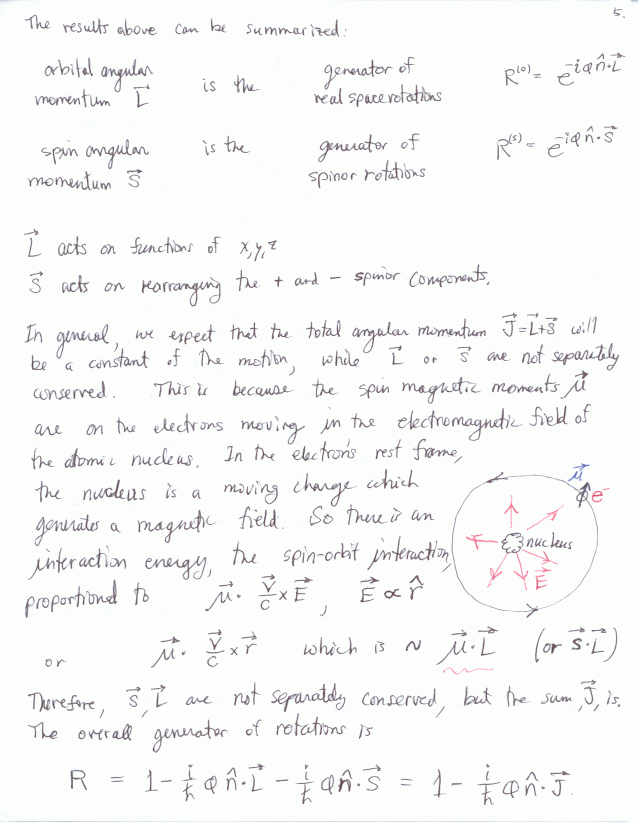 5.
The results above can be summarized:
orbital angular momentum L⃗ is the generator of real space rotations R⁽⁰⁾ = e^{-iφn̂·L⃗}
spin angular momentum S⃗ is the generator of spinor rotations R⁽ˢ⁾ = e^{-iφn̂·S⃗}
L⃗ acts on functions of x,y,z
S⃗ acts on rearranging the + and - spinor components.
In general, we expect that the total angular momentum J⃗=L⃗+S⃗ will
be a constant of the motion, while L⃗ or S⃗ are not separately
conserved. This is because the spin magnetic moments μ⃗
are on the electrons moving in the electromagnetic field of
the atomic nucleus. In the electron's rest frame,
the nucleus is a moving charge which
generates a magnetic field. So there is an
interaction energy, the spin-orbit interaction,
proportional to μ⃗ · v⃗/c × E⃗, E⃗ ∝ r̂
μ⃗
e⁻
nucleus
E⃗
or μ⃗ · v⃗/c × r⃗ which is ~ μ⃗·L⃗ (or s⃗·L⃗)
Therefore, S⃗, L⃗ are not separately conserved, but the sum, J⃗, is.
The overall generator of rotations is
R = 1 - i/ħ φn̂·L⃗ - i/ħ φn̂·S⃗ = 1 - i/ħ φn̂·J⃗.